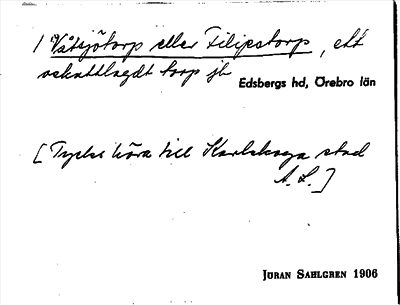 1 Våtsjötorp eller Filipstorp, ett
oskattlagdt torp jb
Edsbergs hd, Örebro län
[Tyckes höra till Karlskoga stad
A. L.]
JÖRAN SAHLGREN 1906